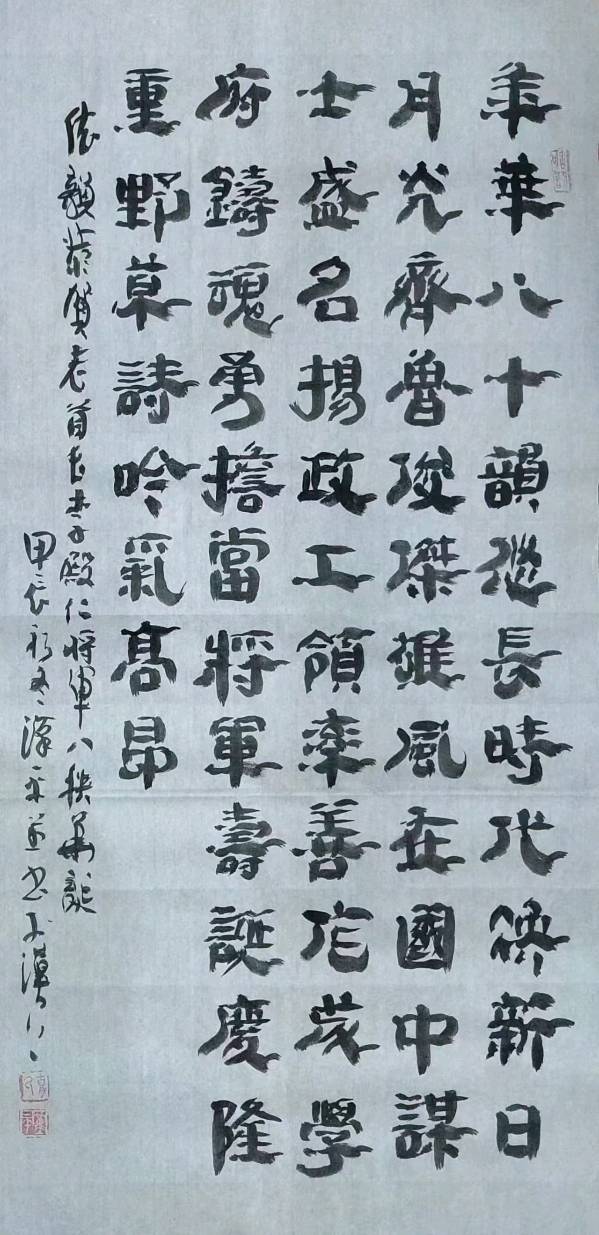 年華八十韻悠長時代映新日
月光齊魯俊傑雄風在國中謀
士盛名揚政工領率善作戎學
府鑄魂勇擔當將軍壽誕慶隆
重野草詩吟氣高昂
依韻恭賀老首長李殿仁將軍八秩華誕
甲辰初冬漢平並書於漢